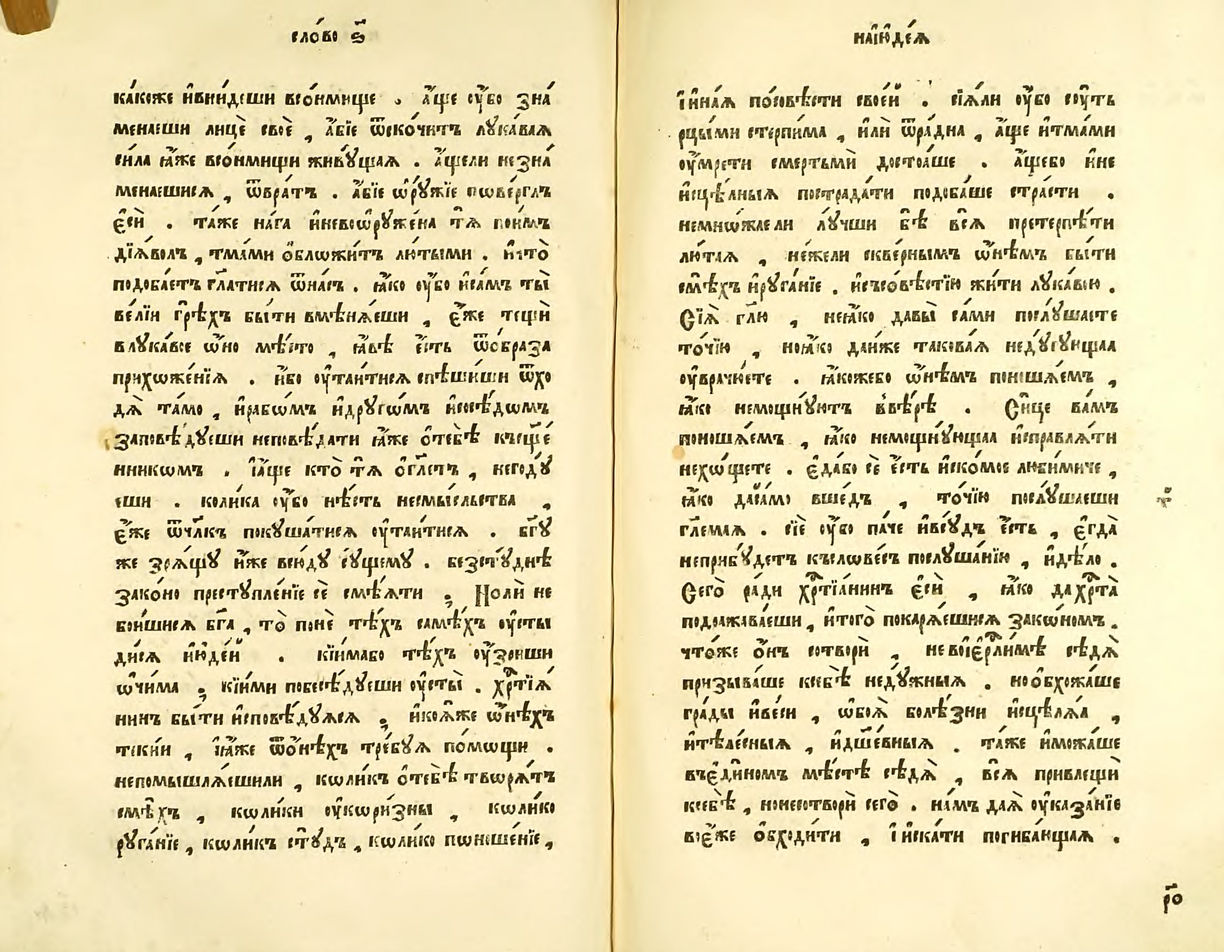 сло́во ѕ҃
ка́коже и҆вни́деши всо́нмище . а҆́ще ᲂу҆́бо зна́
менаеши лицѐ своѐ , а҆́бїе ѿско́читъ лꙋка́ваѧ
си́ла ꙗ҆́же всо́нмищи живꙋ́щаѧ . а҆́щели незна́
менаешисѧ , ѿвра́тъ . а҆́бїе ѡ҆рꙋ́жїе пове́рглъ
є҆сѝ . та́же на́га и҆невоѡрꙋже́на тѧ̀ пои́мъ
дїѧ́волъ , тма́ми ѻ҆бложи́тъ лю́тыми . и҆что̀
подоба́етъ гл҃атисѧ ѿна́съ . ꙗ҆́ко ᲂу҆́бо и҆са́мъ ты̀
ве́лїи грѣ́хъ бы́ти вмѣнѧ́еши , є҆́же тещѝ
влꙋка́вое ѡ҆́но мѣ́сто , ꙗ҆́вѣ є҆́сть ѿѻ́браза
прихоже́нїѧ . и҆́бо ᲂу҆таи́тисѧ спѣши́ши ѿхо
дѧ̀ та́мо , и҆рабѡ́мъ и҆дрꙋгѡ́мъ и҆сосѣ́дѡмъ
заповѣ́дꙋеши неповѣ́дати ꙗ҆́же ѻ҆тебѣ̀ къ сще́
нникѡмъ . і҆а҆́ще кто̀ тѧ̀ ѻ҆гл҃етъ , негодꙋ́
еши . коли́ка ᲂу҆́бо нѣ́сть несмы́сльства ,
є҆́же ѿчл҃къ покꙋша́тисѧ ᲂу҆таи́тисѧ . бг҃ꙋ
же зрѧ́щꙋ и҆́же всю́дꙋ сꙋ́щемꙋ . безстꙋ́днѣ
зако́но престꙋпле́нїе сѐ смѣ́ѧти ; Но́ли не
бои́шисѧ бг҃а , то̀ понѐ тѣ́хъ самѣ́хъ ᲂу҆сты
ди́сѧ и҆ю҆де́й . кїи́мабо тѣ́хъ ᲂу҆́зриши
ѡ҆чи́ма ; кїи́ми побесѣ́дꙋеши ᲂу҆сты̀ . хрⷭ҇тїѧ́
нинъ бы́ти и҆сповѣ́дꙋѧсѧ ; и҆ко ꙗ҆́же ѡ҆нѣ́хъ
теки́и , і҆ꙗ҆́же ѿо҆нѣ́хъ тре́бꙋѧ по́мощи .
непомышлѧ́ешили , коли́къ ѻ҆тебѣ̀ творѧ́тъ
смѣ́хъ , коли́ки ᲂу҆кори́зны , коли́ко
рꙋга́нїе , коли́къ стꙋ́дъ , коли́ко поноше́нїе ,
наі҆ю҆де́ѧ
і҆и҆на́ѧ посо́вѣсти свое́й . сїѧ́ли ᲂу҆́бо сꙋ́ть
рцы́ми стерпи́ма , и҆лѝ ѿра́дна , а҆́ще и҆тма́ми
ᲂу҆мре́ти сме́ртьмѝ досто́ѧше . а҆́щебо и҆не
и҆сцѣ́лныѧ пострада́ти подоба́ше стра́сти .
немно́жаели лꙋ́чши бѣ̀ всѧ̀ претерпѣ́ти
лю́таѧ , не́жели скве́рнымъ ѡ҆нѣ́мъ бы́ти
смѣ́хъ и҆рꙋга́нїе . и҆съсо́вѣстїю жи́ти лꙋка́вою .
Сїѧ̀ гл҃ю , неꙗ҆́ко давы̀ са́ми послꙋ́шаете
то́чїю , ноꙗ҆́ко да и҆́же такова́ѧ недꙋ́гꙋющаа
ᲂу҆врачꙋ́ете . ꙗ҆́коже бо ѡ҆нѣ́мъ поноша́емъ ,
ꙗ҆́ко немощꙋ́ютъ ввѣ́рѣ . Си́це ва́мъ
поноша́емъ , ꙗ҆́ко немощꙋ́ющаа и҆справлѧ́ти
нехо́щете . є҆да́бо сѐ є҆́сть и҆ско́мое люби́миче ,
ꙗ҆́ко да са́мо вше́дъ , то́чїю послꙋ́шаеши
гл҃емаѧ . сїѐ ᲂу҆́бо па́че и҆всꙋ́дъ є҆́сть , є҆гда̀
неприбꙋ́детъ къслове́съ послꙋша́нїю , и҆дѣ́ло .
Сего̀ ра́ди хрⷭ҇тїа́нинъ є҆сѝ , ꙗ҆́ко да хрⷭ҇та̀
подража́еши , и҆того̀ покарѧ́ешисѧ зако́номъ .
что́же ѻ҆́нъ сотворѝ , не воі҆ер҇лимѣ сѣдѧ̀
призыва́ше ксебѣ̀ недꙋ́жныѧ . но ѻ҆бхожа́ше
гра́ды и҆ве́си , ѻ҆боѧ̀ болѣ́зни и҆сцѣлѧ́ѧ ,
и҆тѣле́сныѧ , и҆дш҃е́вныѧ . та́же и҆можа́ше
въє҆ди́номъ мѣ́стѣ сѣдѧ̀ , всѧ̀ привлещѝ
ксебѣ̀ , нонесотворѝ сего̀ . на́мъ даѧ̀ ᲂу҆каза́нїе
воє҆́же ѻ҆бходи́ти , і҆и҆ска́ти погиба́ющаѧ .
ро҃